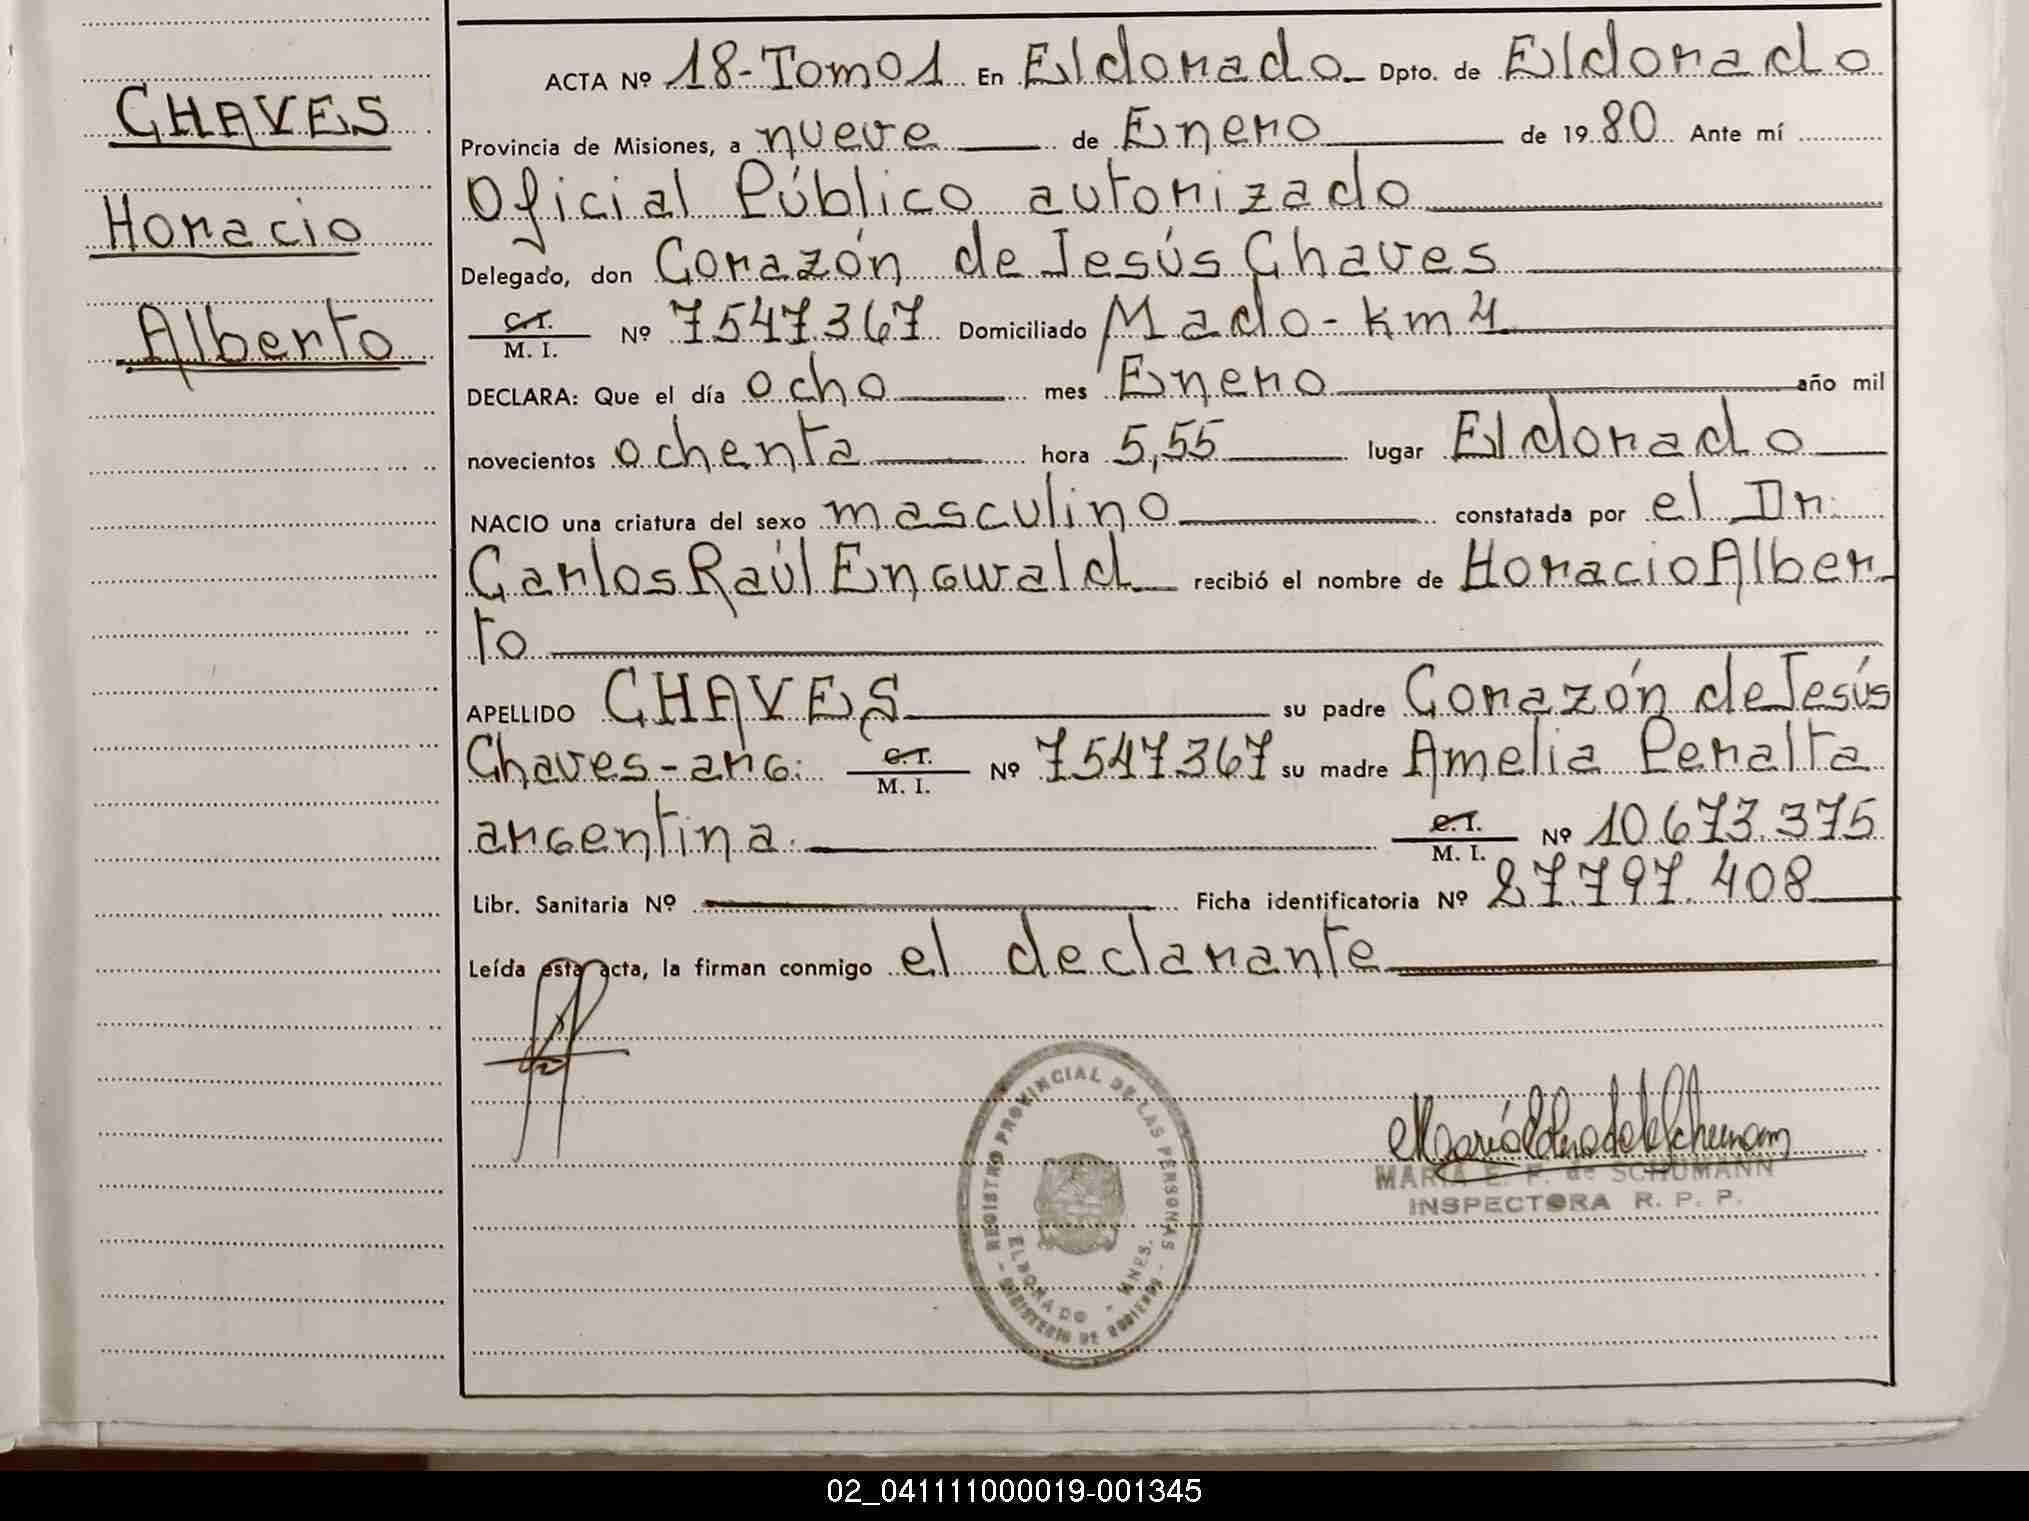 CHAVES
Horacio
Alberto
ACTA Nº 18-Tomo1 En Eldorado Dpto. de Eldorado
Provincia de Misiones, a nueve de Enero de 1980 Ante mí
Oficial Público autorizado
Delegado, don Corazón de Jesús Chaves
C.I. M. I. Nº 7547367 Domiciliado Mado-km4
DECLARA: Que el día ocho mes Enero año mil
novecientos ochenta hora 5,55 lugar Eldorado
NACIO una criatura del sexo masculino constatada por el Dr.
Carlos Raúl Engwald recibió el nombre de Horacio Alber
to
APELLIDO CHAVES su padre Corazón de Jesús
Chaves-arg. C.I. M. I. Nº 7547367 su madre Amelia Peralta
argentina. C.I. M. I. Nº 10.673.375
Libr. Sanitaria Nº Ficha identificatoria Nº 27.797.408
Leída esta acta, la firman conmigo el declarante
REGISTRO PROVINCIAL DE LAS PERSONAS
ELDORADO - MNES.
MINISTERIO DE GOBIERNO
MARIA E. F. de SCHUMANN
INSPECTORA R. P. P.
02_041111000019-001345